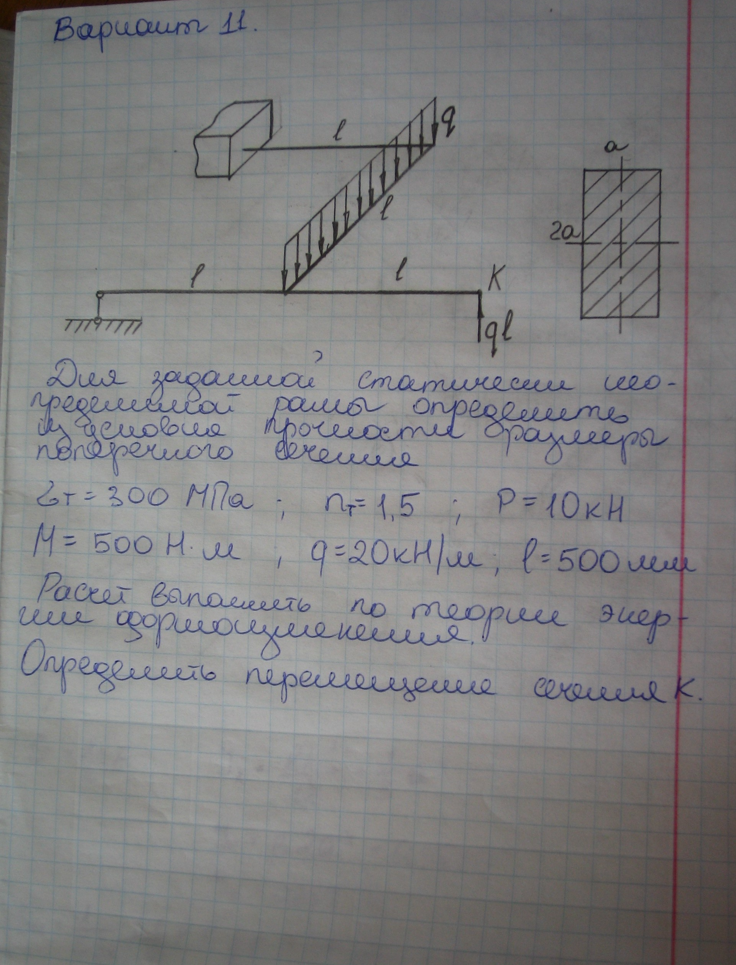 Вариант 11.
l
q
a
l
2a
l
l
K
ql
Для заданной статически нео-
пределимой рамы определить
из условия прочности размеры
поперечного сечения
σт = 300 МПа ; nт = 1,5 ; P = 10 кН
M = 500 Н·м , q = 20 кН/м ; l = 500 мм
Расчет выполнить по теории энер-
гии формоизменения.
Определить перемещение сечения K.